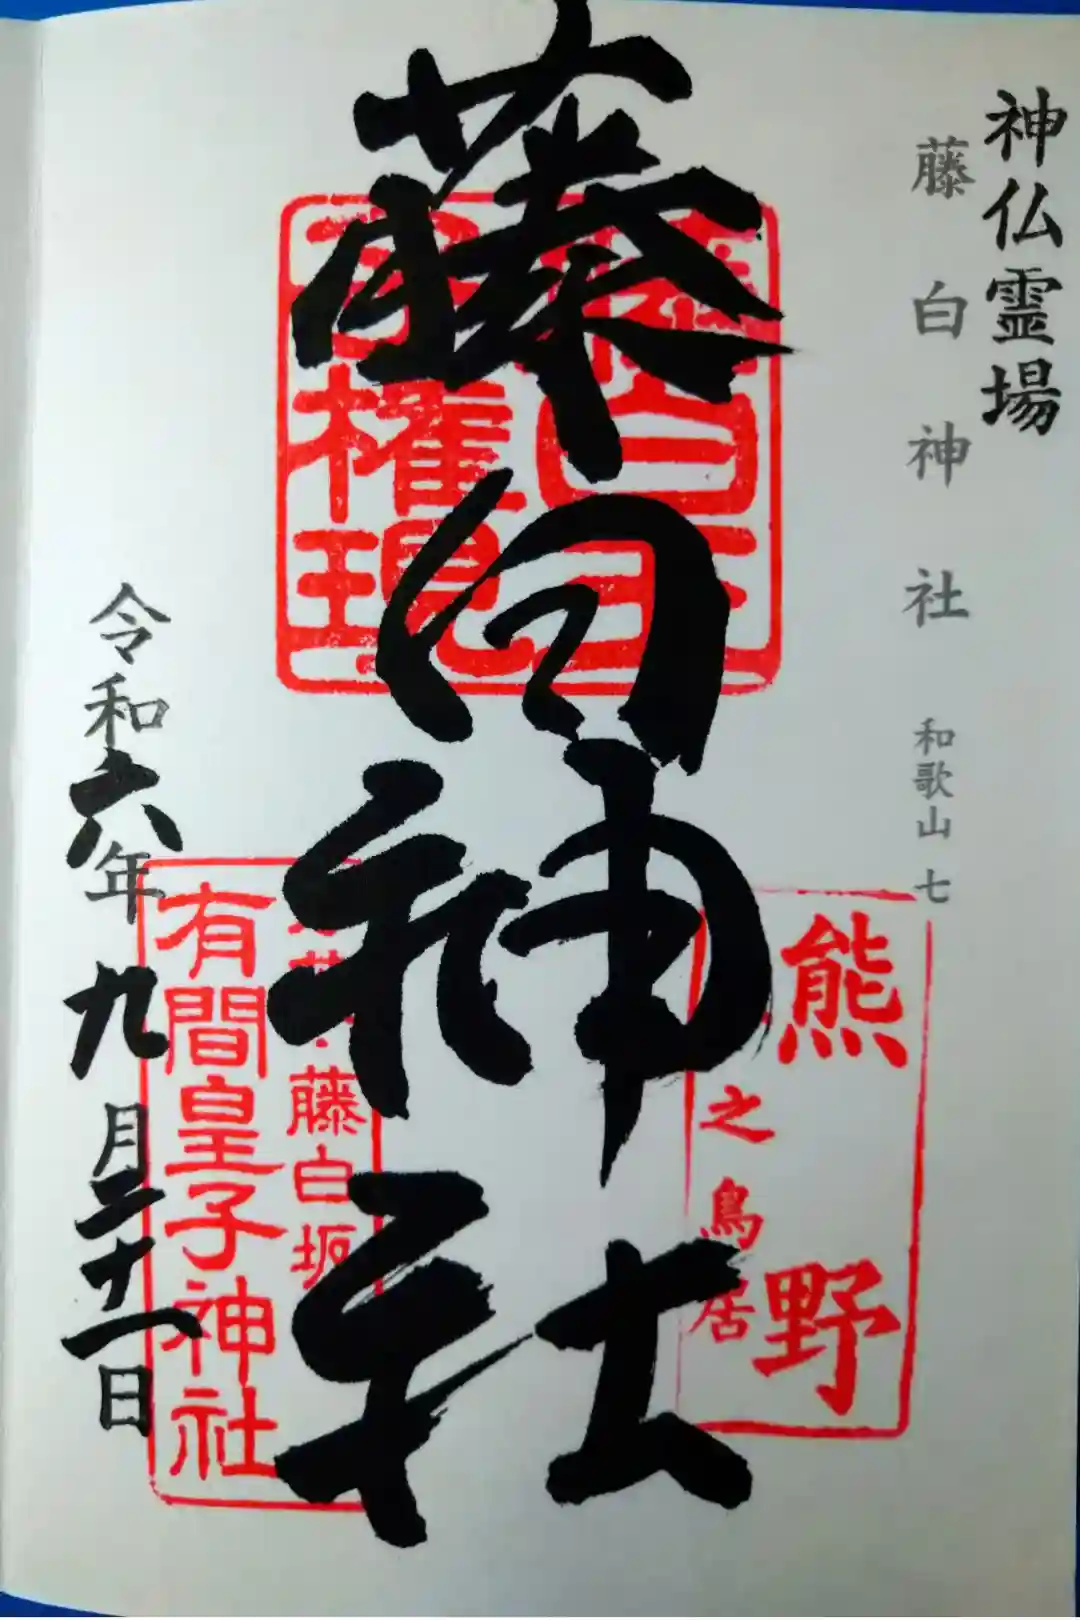 神仏霊場
藤白神社 和歌山 七
藤白神社
白王
権現
熊野
之鳥居
藤白坂
有間皇子神社
令和六年九月二十一日